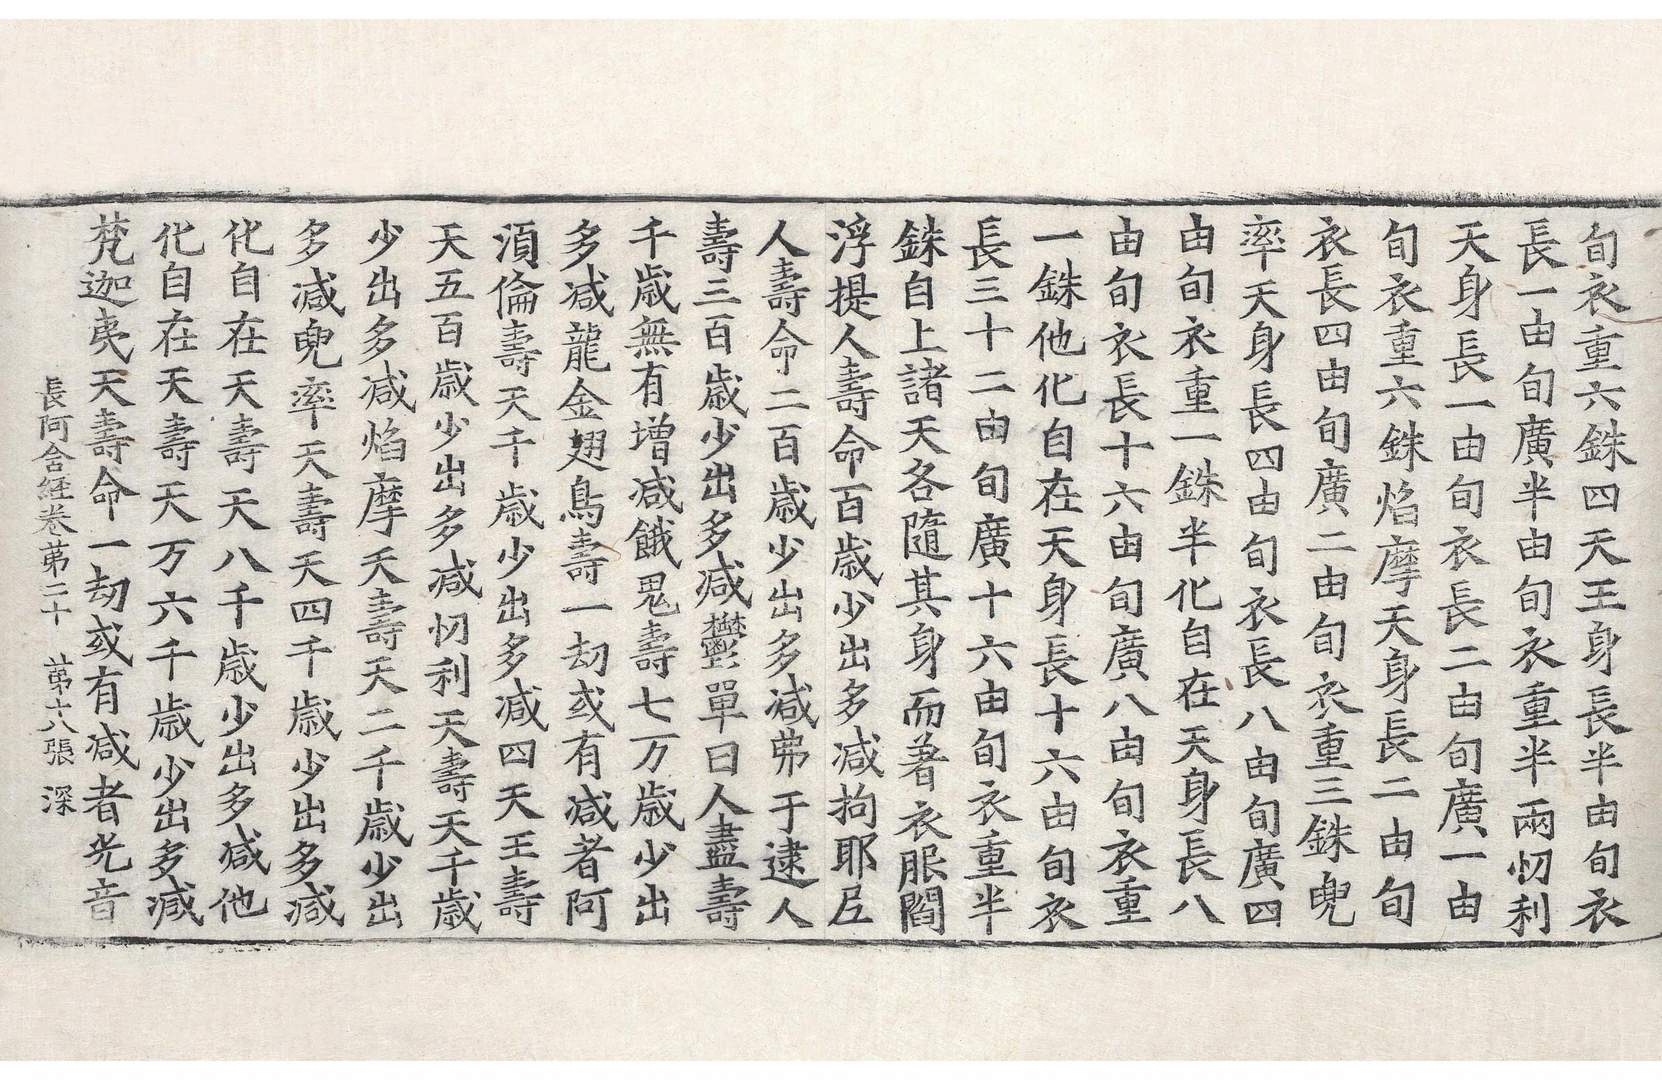 旬衣重六銖四天王身長半由旬衣
長一由旬廣半由旬衣重半兩忉利
天身長一由旬衣長二由旬廣一由
旬衣重六銖焰摩天身長二由旬
衣長四由旬廣二由旬衣重三銖兜
率天身長四由旬衣長八由旬廣四
由旬衣重一銖半化自在天身長八
由旬衣長十六由旬廣八由旬衣重
一銖他化自在天身長十六由旬衣
長三十二由旬廣十六由旬衣重半
銖自上諸天各隨其身而著衣服閻
浮提人壽命百歲少出多減拘耶尼
人壽命二百歲少出多減弗于逮人
壽三百歲少出多減鬱單曰人盡壽
千歲無有增減餓鬼壽七万歲少出
多減龍金翅鳥壽一劫或有減者阿
須倫壽天千歲少出多減四天王壽
天五百歲少出多減忉利天壽天千歲
少出多減焰摩天壽天二千歲少出
多減兜率天壽天四千歲少出多減
化自在天壽天八千歲少出多減他
化自在天壽天万六千歲少出多減
梵迦夷天壽命一劫或有減者光音
長阿含經卷苐二十 苐十八張 深